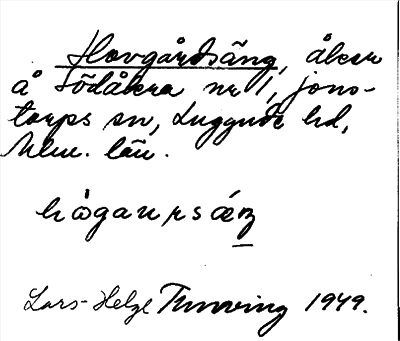 Hovgårdsäng, åker
å Södåkra nr 1, Jons-
torps sn, Luggude hd,
Mlm. län.
hågaursæŋ
Lars-Helge Tunving 1949.